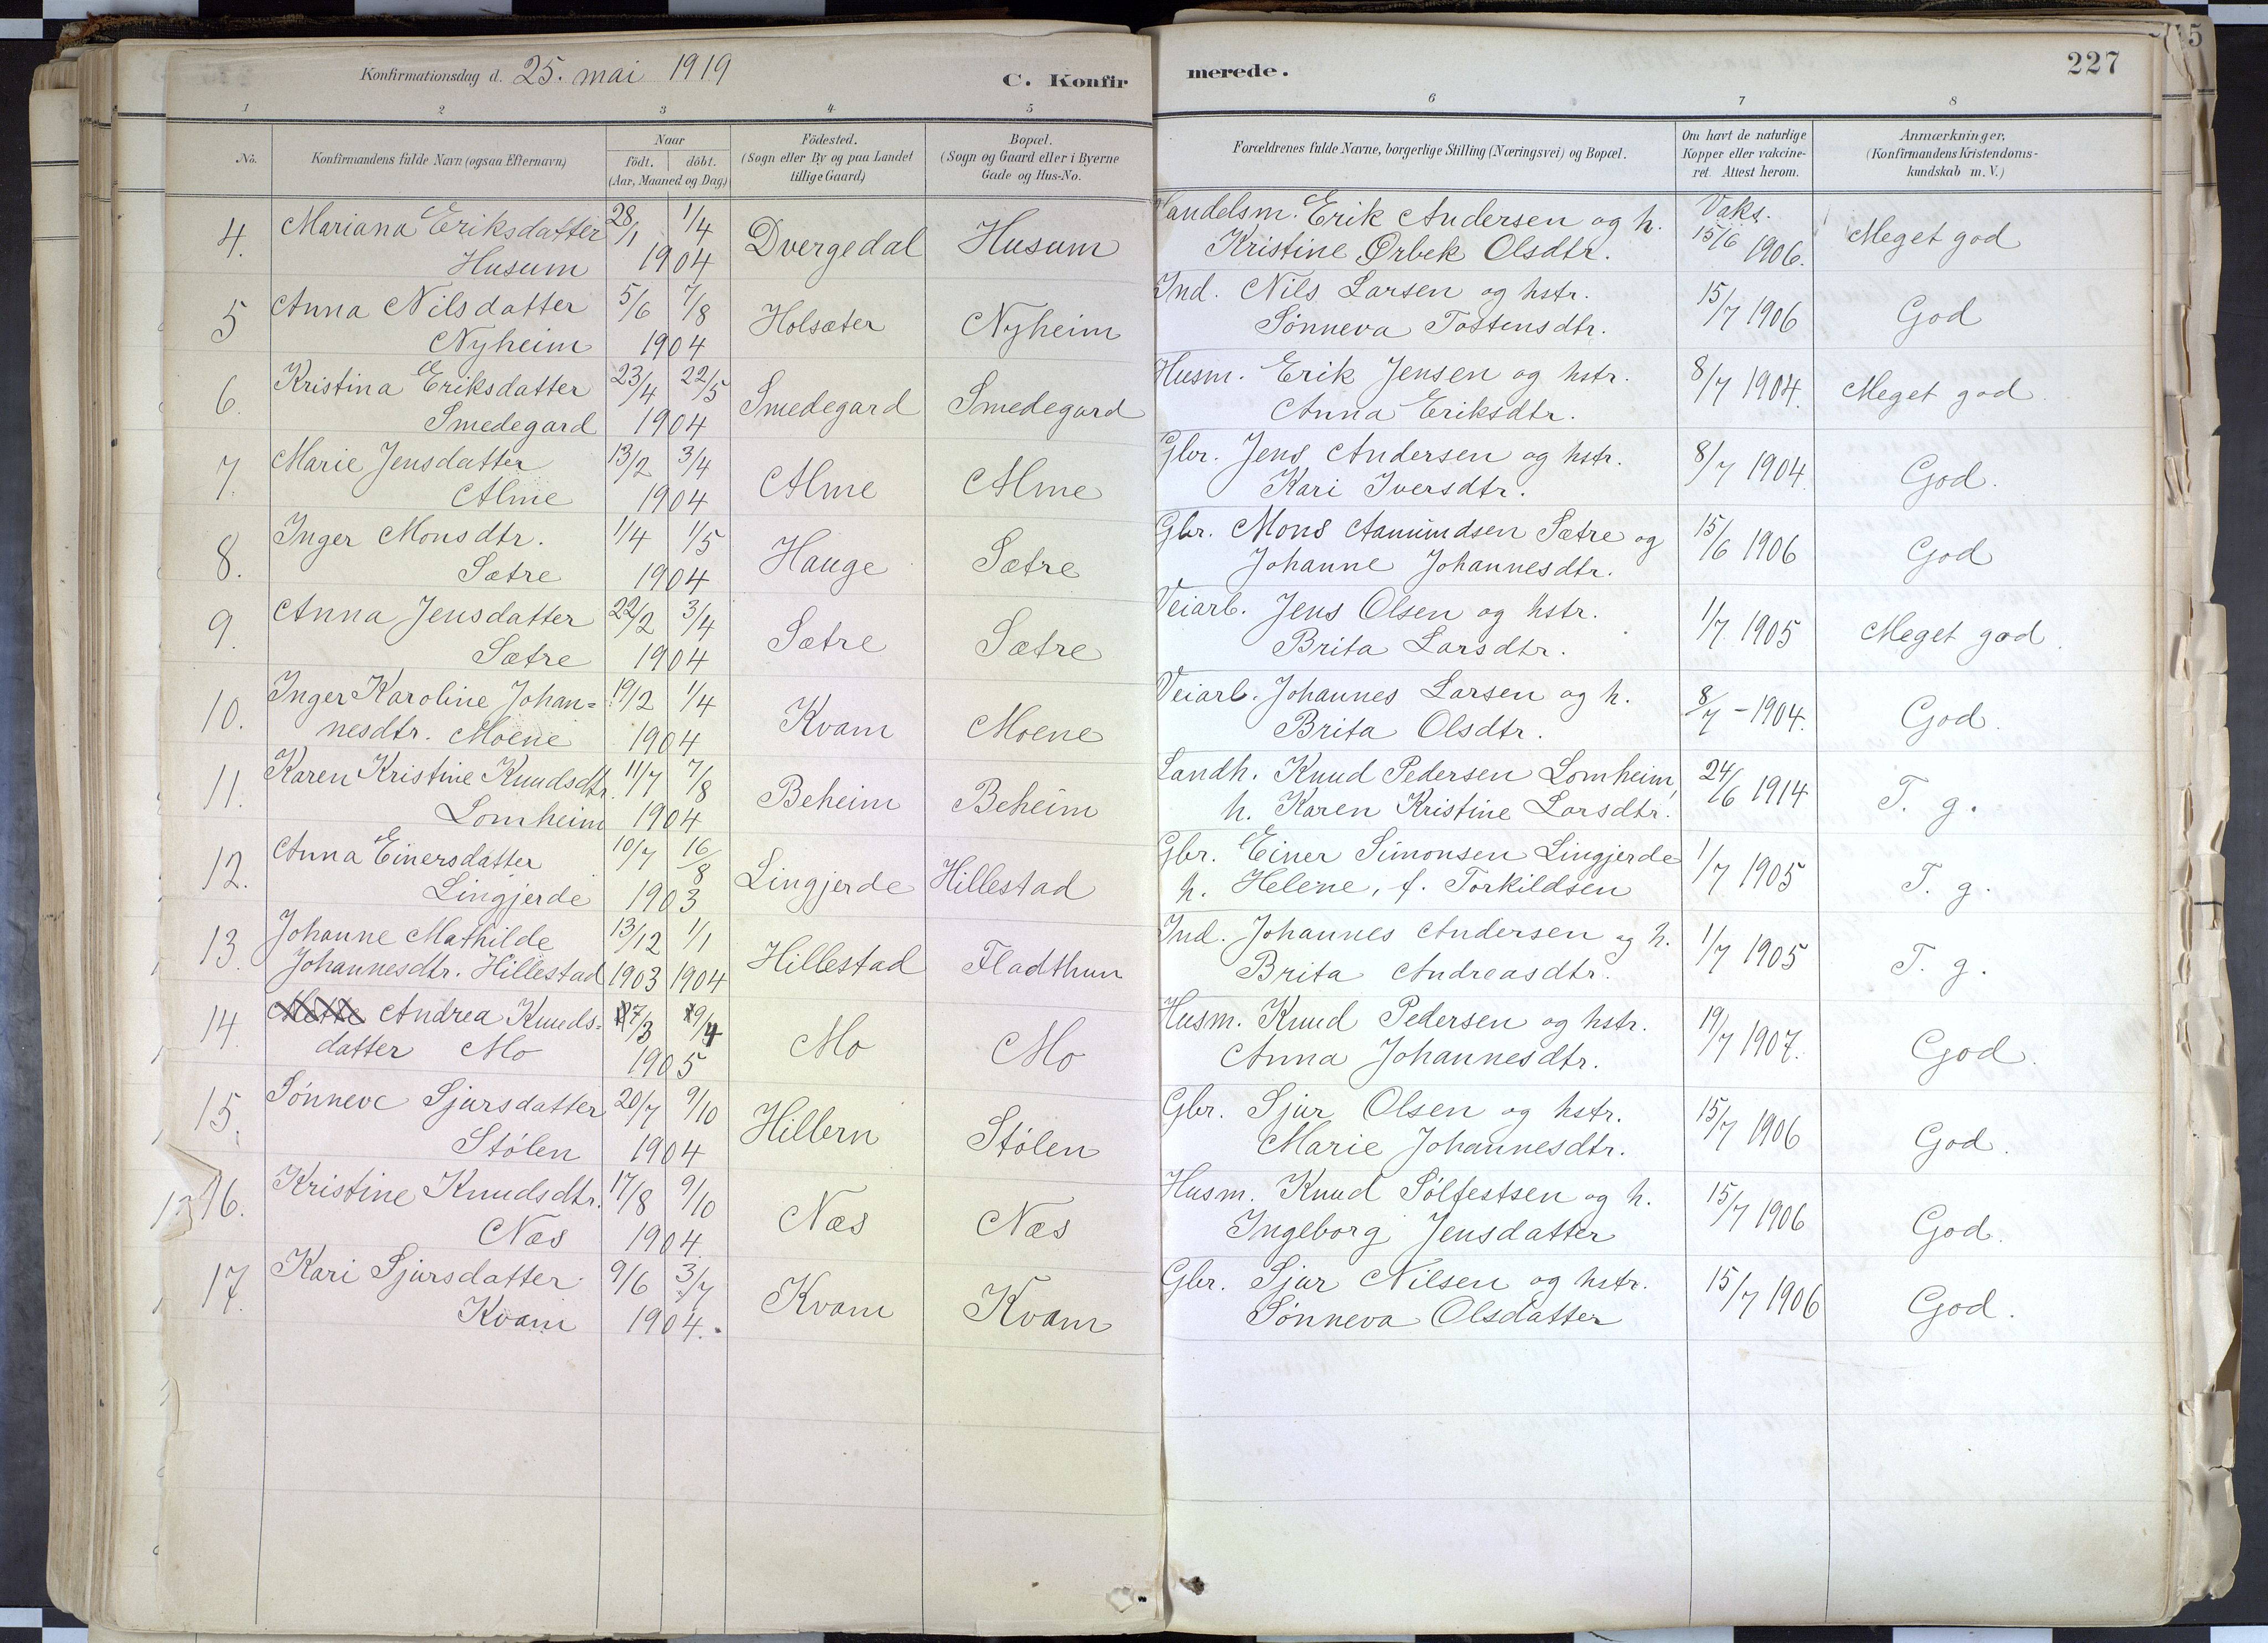 Konfirmationsdag d. 25. mai 1919
C. Konfirmerede.
227
1 2 3 4 5 6 7 8
No.
Konfirmandens fulde Navn (ogsaa Efternavn)
Naar
født. døbt.
(Aar, Maaned og Dag)
Födested.
(Sogn eller By og paa Landet
tillige Gaard)
Bopæl.
(Sogn og Gaard eller i Byerne
Gade og Hus-No.
Forældrenes fulde Navne, borgerlige Stilling (Næringsvei) og Bopæl.
Om havt de naturlige
Kopper eller vakcine-
ret. Attest herom.
Anmærkninger.
(Konfirmandens Kristendoms-
kundskab m. V.)
4. Mariana Eriksdatter 28/1 1/4 Dvergedal Husum Handelsm. Erik Andersen og h. Vaks. 15/6 1906. Meget god
Husum 1904 Kristine Ørbek Olsdtr.
5 Anna Nilsdatter 5/6 7/8 Holsæter Nyheim Ind. Nils Larsen og hstr. 15/7 1906 God
Nyheim 1904 Sønneva Tostensdtr.
6. Kristina Eriksdatter 23/4 22/5 Smedegard Smedegard Husm. Erik Jensen og hstr. 8/7 1904. Meget god.
Smedegard 1904 Anna Eriksdtr.
7. Marie Jensdatter 13/2 3/4 Alme Alme Gbr. Jens Andersen og hstr. 8/7 1904. God.
Alme 1904 Kari Iversdtr.
8. Inger Monsdtr. 1/4 1/5 Hauge Sætre Gbr. Mons Aamundsen Sætre og 15/6 1906 God
Sætre 1904 Johanne Johannesdtr.
9. Anna Jensdatter 22/2 3/4 Sætre Sætre Veiarb. Jens Olsen og hstr. 1/7 1905 Meget god.
Sætre 1904 Brita Larsdtr.
10. Inger Karoline Johan= 19/2 1/4 Kvam Moene Veiarb. Johannes Larsen og h. 8/7 - 1904. God.
nesdtr. Moene 1904 Brita Olsdtr.
11. Karen Kristine Knudsdtr. 11/7 7/8 Beheim Beheim Landh. Knud Pedersen Lomheim, 24/6 1914 T. g.
Lomheim 1904 h. Karen Kristine Larsdtr.
12. Anna Einersdatter 10/7 16/8 Lingjerde Hillestad Gbr. Einer Simonsen Lingjerde 1/7 1905 T. g.
Lingjerde 1903 h. Helene, f. Torkildsen
13. Johanne Mathilde 13/12 1/1 Hillestad Fladthun Ind. Johannes Andersen og h. 1/7 1905 T. g.
Johannesdtr. Hillestad 1903 1904 Brita Andreasdtr.
14. Mette Andrea Knuds- 27/3 9/4 Mo Mo Husm. Knud Pedersen og hstr. 19/7 1907. God.
datter Mo 1905 Anna Johannesdtr.
15. Sønneve Sjursdatter 20/7 9/10 Hillern Stølen Gbr. Sjur Olsen og hstr. 15/7 1906 God.
Stølen 1904 Marie Johannesdtr.
16. Kristine Knudsdtr. 17/8 9/10 Næs Næs Husm. Knud Sølfestsen og h. 15/7 1906 God.
Næs 1904. Ingeborg Jensdatter
17. Kari Sjursdatter 9/6 3/7 Kvam Kvam Gbr. Sjur Nilsen og hstr. 15/7 1906 God.
Kvam 1904. Sønneva Olsdatter